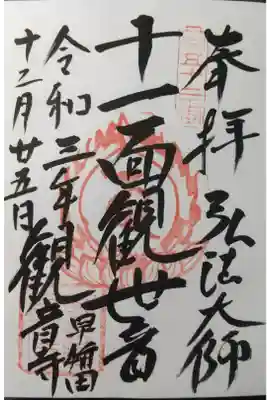 奉拝 弘法大師
十一面観世音
早稲田 観音寺
令和三年
十二月廿五日